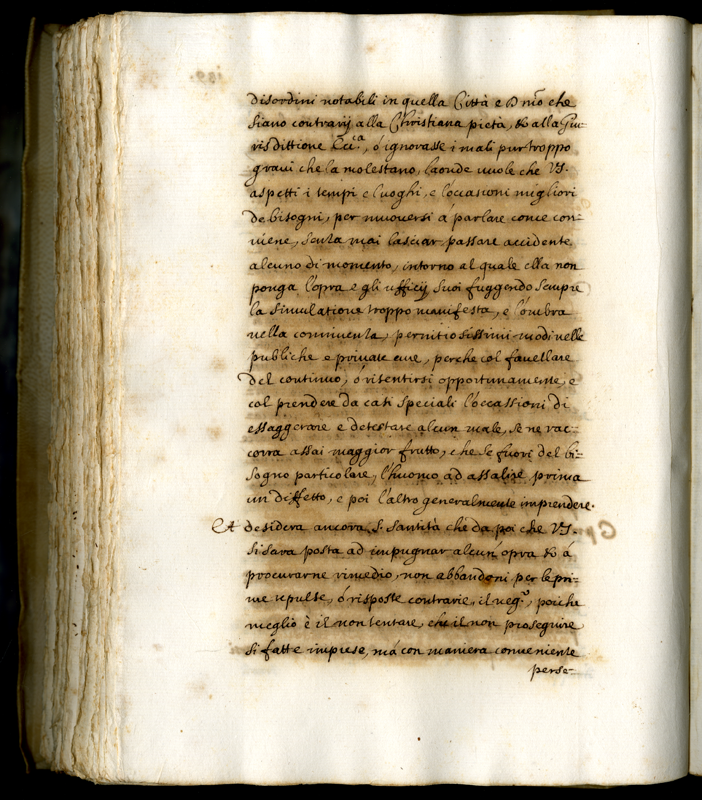 disordini notabili in quella Città e Dnio che
siano contrarij alla Christiana pietà, & alla Giu-
risdittione Ecca, ó ignorasse i mali pur troppo
gravi che la molestano, laonde vuole che VS.
aspetti i tempi e luoghi, e l'occasioni migliori
de bisogni, per muoversi á parlare come con-
viene, senza mai lasciar passare accidente
alcuno di momento, intorno al quale ella non
ponga l'opra e gli ufficij suoi fuggendo sempre
la simulatione troppo manifesta, e l'ombra
nella conniventa, pernitiosissimi modi nelle
publiche e private cure, perche col favellare
del continuo, ó risentirsi opportunamente, e
col prendere da cati speciali l'occassioni di
essaggerare e detestare alcun male, se ne rac-
corra assai maggior frutto, che se fuori del bi-
sogno particolare, l'huomo ad assalire prima
un diffetto, e poi l'altro generalmente imprendere.
Et desidera ancora S. Santità che da poi che VS.
si sara posta ad impugnar alcun opra & á
procurarne rimedio, non abbandoni per le pri-
me repulse, ó risposte contrarie, il nego, poiche
meglio è il non tentare, che il non proseguire
si fatte imprese, má con maniera conveniente
perse-